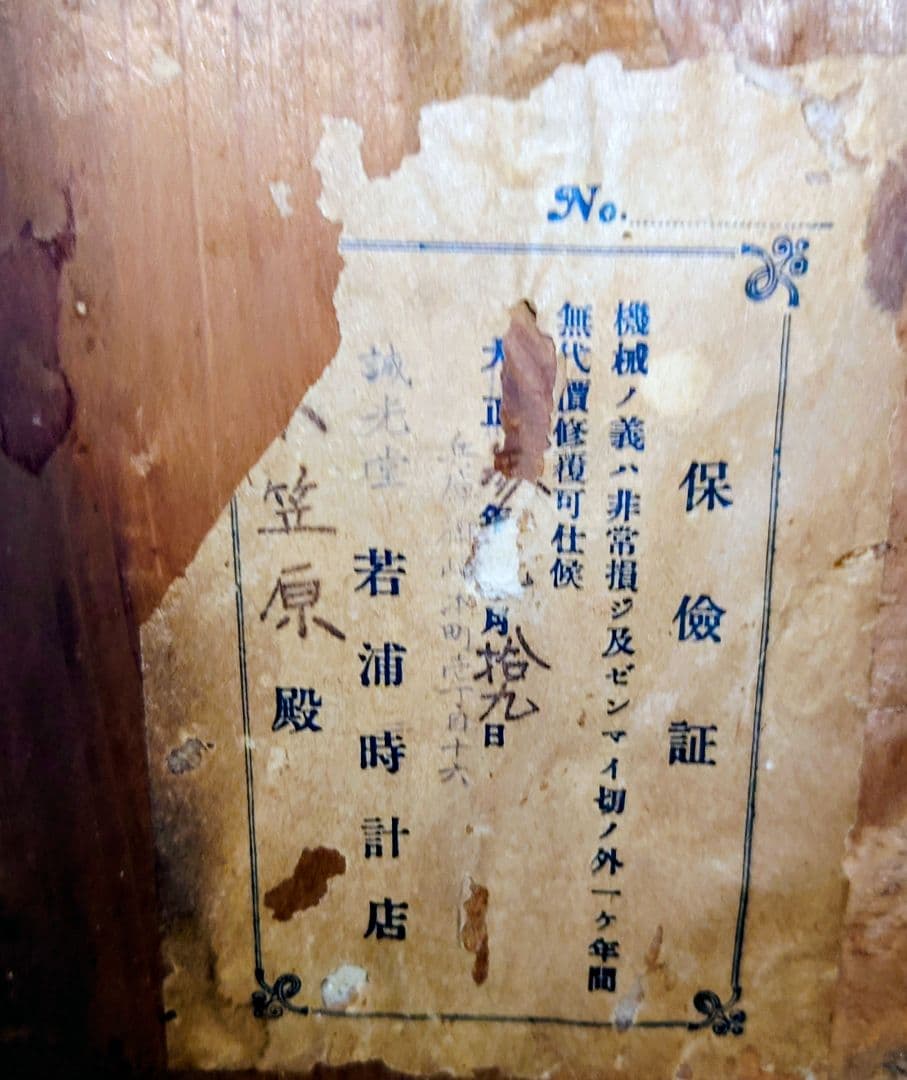 No.
保儉証
機械ノ義ハ非常損ジ及ゼンマイ切ノ外一ケ年間
無代償修復可仕候
大正 年 月拾九日
町壱丁目十六
誠光堂 若浦時計店
笠原殿